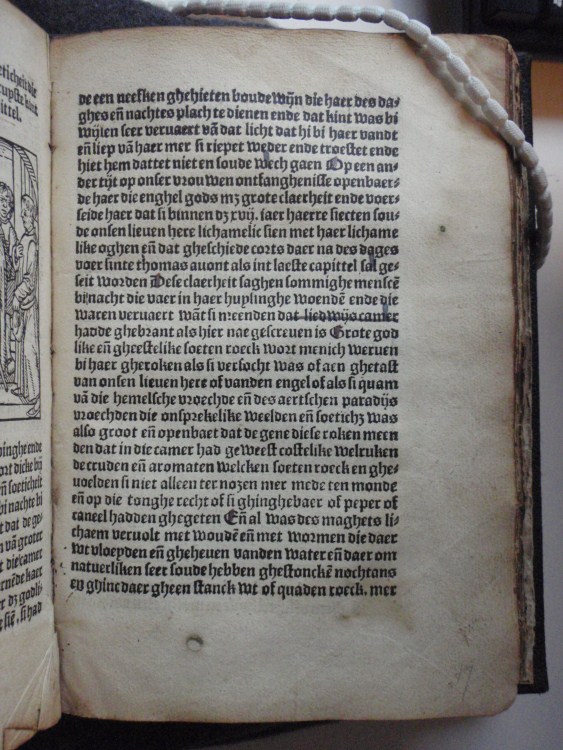 eticheit die
ittel.
de een neefken ghehieten boudewijn die haer des da⸗
ghes en̄ nachtes plach te dienen ende dat kint was bi
wijlen seer veruaert vā dat licht dat hi bi haer vandt
en̄ liep vā haer mer si riepet weder ende troestet ende
hiet hem dattet niet en soude wech gaen Op een an⸗
der tijt op onser vrouwen ontfanghenisse openbaer⸗
de haer die enghel gods mꝫ grote claerheit ende voer⸗
seide haer dat si binnen dꝫ xvij. iaer haerre siecten sou⸗
de onsen lieuen here lichamelic sien met haer lichame
like oghen en̄ dat gheschiede corts daer na des dages
voer sinte thomas auont als int laeste capittel sal ge⸗
seit worden Dese claerheit saghen sommighe menscē
bi nacht die vaer in haer huysinghe woendē ende die
waren veruaert wāt si meenden dat lied wijs camer
hadde ghebrant als hier nae gescreuen is Grote god
like en̄ gheestelike soeten roeck wort menich weruen
bi haer gheroken als si versocht was of aen ghetast
van onsen lieuen here of vanden engel of als si quam
vā die hemelsche vroechde en̄ des aertschen paradijs
vroechden die onsprekelike weelden en̄ soetichꝫ was
also groot en̄ openbaet dat de gene diese roken meen
den dat in die camer had geweest costelike welruken
de cruden en̄ aromaten welcken soeten roeck en ghe⸗
uoelden si niet alleen ter nozen mer mede ten monde
en̄ op die tonghe recht of si ghinghebaer of peper of
caneel hadden ghegeten En̄ al was des maghets li⸗
chaem veruolt met woudē en̄ met wormen die daer
wt vloeyden en̄ gheheuen vanden water en̄ daer om
natuerliken seer soude hebben ghestonckē nochtans
en ghinc daer gheen stanck wt of quaden roeck. mer
inghe ende
ort dicke bij
en̄ soeticheit
bi nachte bi
t dat de ge⸗
vā groter
t die camer
ernēde kaer
r dꝫ godli⸗
e siē. si had